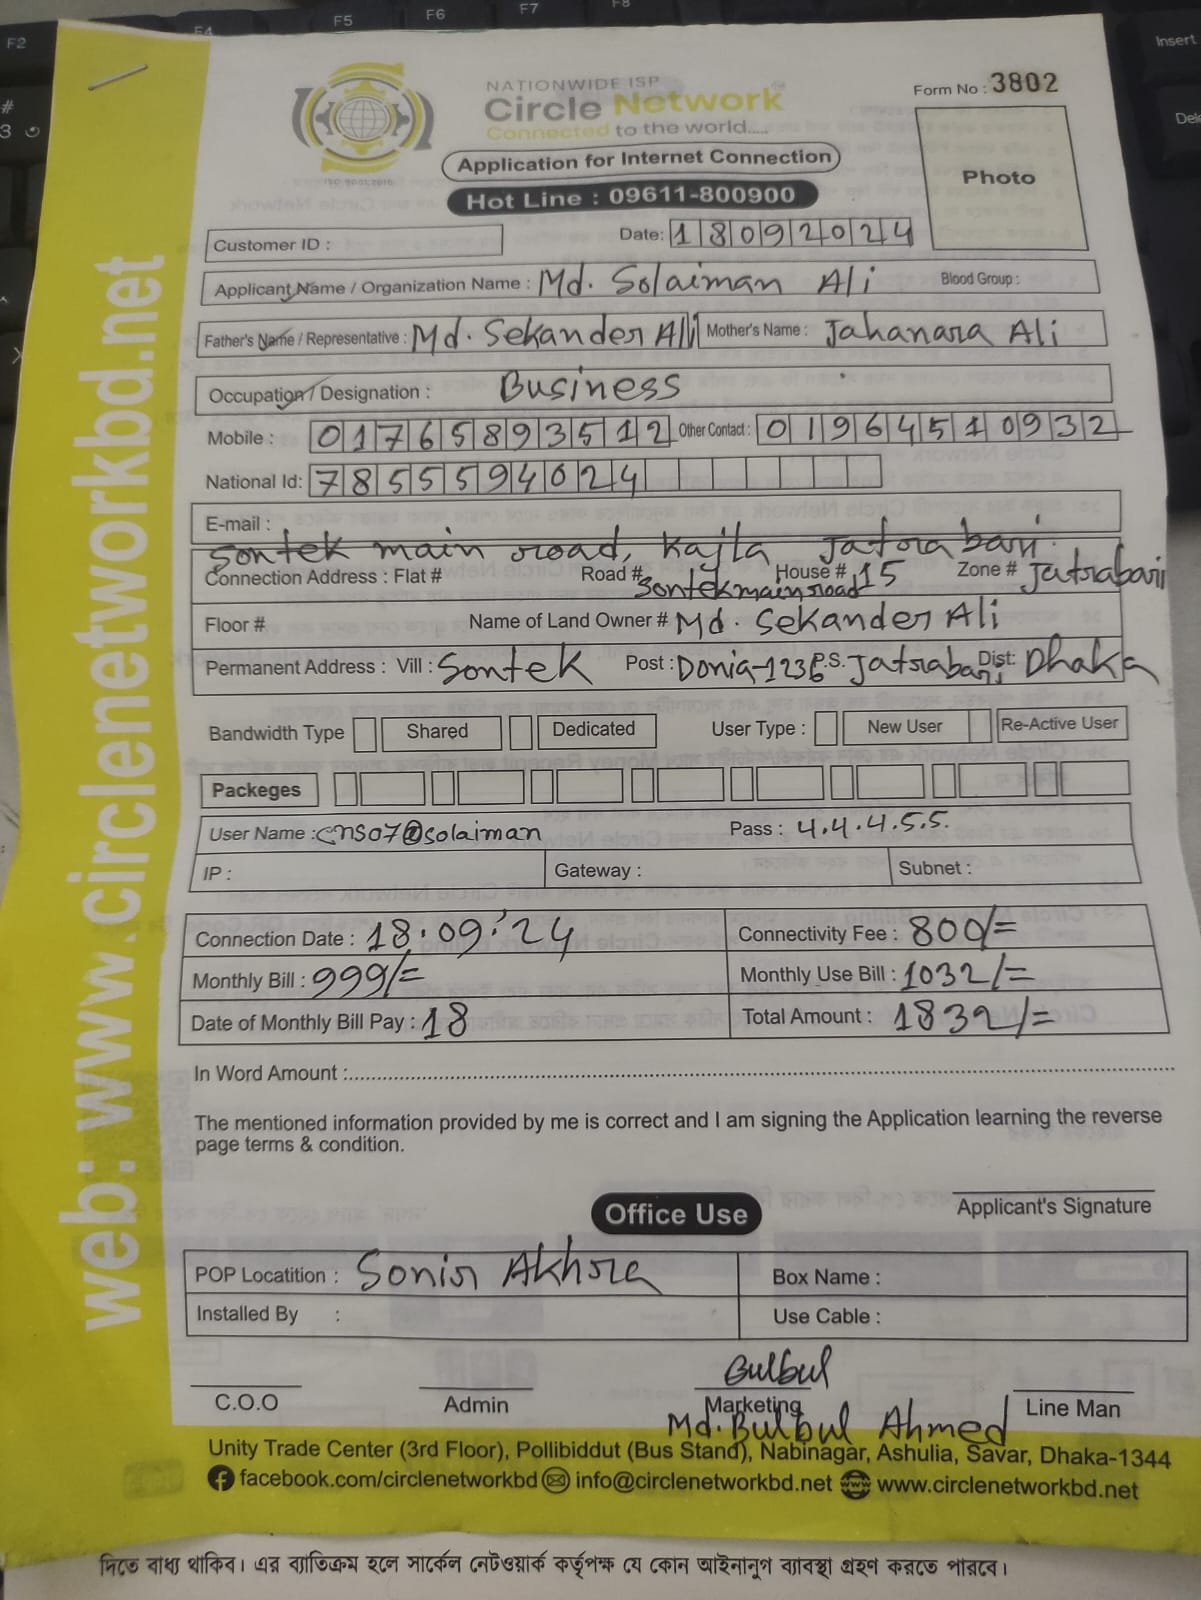 F2
F4
F5
F6
F7
F8
Insert
#
3
NATIONWIDE ISP
Circle Network
Connected to the world.....
ISO 9001:2015
Form No : 3802
Photo
Application for Internet Connection
Hot Line : 09611-800900
Customer ID :
Date: 18092024
Applicant Name / Organization Name : Md. Solaiman Ali Blood Group :
Father's Name / Representative : Md. Sekander Ali Mother's Name : Jahanara Ali
Occupation / Designation : Business
Mobile : 01765893512 Other Contact : 01964510932
National Id: 7855594024
E-mail :
Sontek main road, Kajla Jatrabari.
Connection Address : Flat # Road # Sontek main road House # 15 Zone # Jatrabari
Floor # Name of Land Owner # Md. Sekander Ali
Permanent Address : Vill : Sontek Post : Donia-1236 P.S. Jatrabari Dist: Dhaka
Bandwidth Type Shared Dedicated User Type : New User Re-Active User
Packeges
User Name : cns07@solaiman Pass : 4.4.4.5.5.
IP : Gateway : Subnet :
Connection Date : 18.09.'24 Connectivity Fee : 800/=
Monthly Bill : 999/= Monthly Use Bill : 1032/=
Date of Monthly Bill Pay : 18 Total Amount : 1832/=
In Word Amount :
The mentioned information provided by me is correct and I am signing the Application learning the reverse
page terms & condition.
Applicant's Signature
Office Use
POP Locatition : Sonir Akhra Box Name :
Installed By : Use Cable :
Bulbul
C.O.O Admin Marketing Line Man
Md. Bulbul Ahmed
Unity Trade Center (3rd Floor), Pollibiddut (Bus Stand), Nabinagar, Ashulia, Savar, Dhaka-1344
facebook.com/circlenetworkbd info@circlenetworkbd.net www.circlenetworkbd.net
web: www.circlenetworkbd.net
দিতে বাধ্য থাকিব। এর ব্যতিক্রম হলে সার্কেল নেটওয়ার্ক কর্তৃপক্ষ যে কোন আইনানুগ ব্যাবস্থা গ্রহণ করতে পারবে।